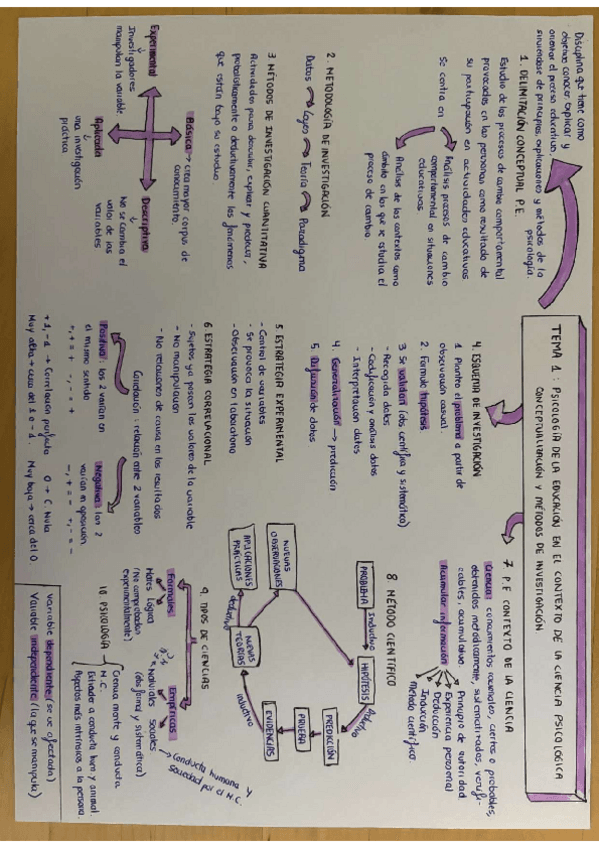 TEMA 1: PSICOLOGÍA DE LA EDUCACIÓN EN EL CONTEXTO DE LA CIENCIA PSICOLÓGICA
CONCEPTUALIZACIÓN Y MÉTODOS DE INVESTIGACIÓN
Disciplina que tiene como
objetivo conocer, explicar y
orientar el proceso educativo,
sirviéndose de principios, explicaciones y métodos de la
psicología.
1. DELIMITACIÓN CONCEPTUAL P.E.
Estudio de los procesos de cambio comportamental
provocados en las personas como resultado de
su participación en actividades educativas
Se centra en
Análisis procesos de cambio
comportamental en situaciones
educativas
Análisis de los contextos como
ámbito en los que se estudia el
proceso de cambio.
2. METODOLOGÍA DE INVESTIGACIÓN
Datos
Leyes
Teoría
Paradigma
3 MÉTODOS DE INVESTIGACIÓN CUANTITATIVA
Actividades para describir, explicar y predecir,
probabilísticamente o deductivamente los fenómenos
que están bajo su estudio
Básica → crea mayor corpus de
conocimiento.
Experimental
↓
Investigadores
manipulan la variable.
Descriptiva
↓
No se cambia el
valor de las
variables
Aplicada
↓
una investigación
práctica
4. ESQUEMA DE INVESTIGACIÓN
1 Plantea el problema a partir de
observación casual.
2. Formula hipótesis
3 Se validan (obs científica y sistemática)
- Recogida datos
- Codificación y análisis datos
- Interpretación datos
4. Generalización → predicción
5. Difusión de datos
5 ESTRATEGIA EXPERIMENTAL
- Control de variables
- Se provoca la situación
- Observación en laboratorio
6 ESTRATEGIA CORRELACIONAL
- Sujetos ya poseen los valores de la variable
- No manipulación
- No relaciones de causa en los resultados
Correlación: relación entre 2 variables
Positiva: las 2 varían en
el mismo sentido
+, + = + -, - = +
Negativa: las 2
varían en oposición
-, + = - +, - = -
+1, -1 → Correlación perfecta 0 → C. Nula
Muy alta → cerca del 1 o -1. Muy baja → cerca del 0
7 P.E CONTEXTO DE LA CIENCIA
Ciencia: conocimientos racionales, ciertos o probables,
obtenidos metódicamente, sistematizados, verifi-
cables, acumulativo.
Acumular información
Principio de autoridad
Experiencia personal
Deducción
Inducción
Método científico
8 MÉTODO CIENTÍFICO
PROBLEMA
Inductivo
HIPÓTESIS
PREDICCIÓN
PRUEBA
EVIDENCIAS
inductivo
NUEVAS
TEORÍAS
deductivo
NUEVAS
OBSERVACIONES
APLICACIONES
PRÁCTICAS
9. TIPOS DE CIENCIAS
Formales
Mates Lógica
(No comprobadas
experimentalmente)
Empíricas
Naturales Sociales
(obs formal y sistemática)
→ Conducta humana y
sociedad por el M.C.
10. PSICOLOGÍA
Ciencia mente y conducta
M.C.
Estudiar a conducta hum y animal
Aspectos más intrínsecos a la persona.
Variable dependiente (se ve afectada)
Variable independiente (la que se manipula)